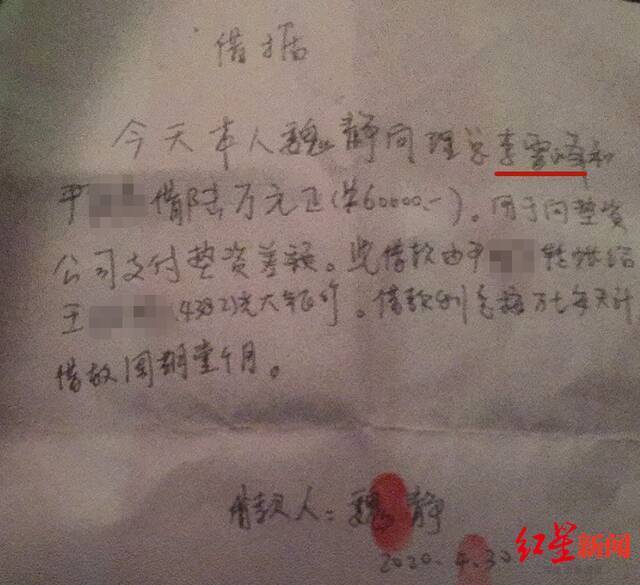 借据
今天本人魏静向理总李雪泽和
尹 借陆万元正(¥60000.-)。用于向垫资
公司支付垫资差额。此借款由尹 转账给
王 (4382)光大银行。借款利息按万七每天计
借款周期壹个月。
借款人:魏静
2020.4.30
红星新闻